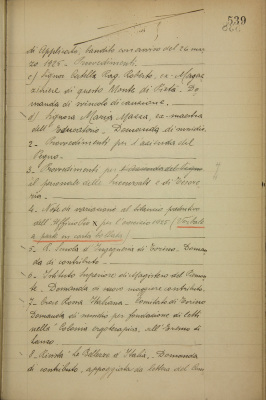 539
di Applicato, bandito con avviso del 26 mag
zo 1926 - Provvedimenti.
c) Signor Catella Rag. Roberto, ex-Magaz
ziniere di questo Monte di Pietà. Do
manda di svincolo di cauzione.
d) Signora Maria Massa, ex-maestra
dell'Educatorio. Domanda di sussidio.
2 - Provvedimenti per l'azienda del
Pegno.
3 - Provvedimenti per
il personale della
4 - Nota di variazioni al bilancio preventivo
dell' per l'esercizio 1925
a parte in carta
5 - R. Scuola d'Ingegneria di Torino. Doman
da di contributo.
6 - Istituto Superiore di Magistero del Piemon
te. Domanda di nuovo maggiore contributo.
7 - Croce Rossa Italiana - Comitato di Torino
Domanda di sussidio per fondazione di letti
nella Colonia ergoterapica all'Eremo di
Lanzo.
8 - Rivista "Le Bellezze d'Italia. Domanda
di contributo, appoggiata da lettera del